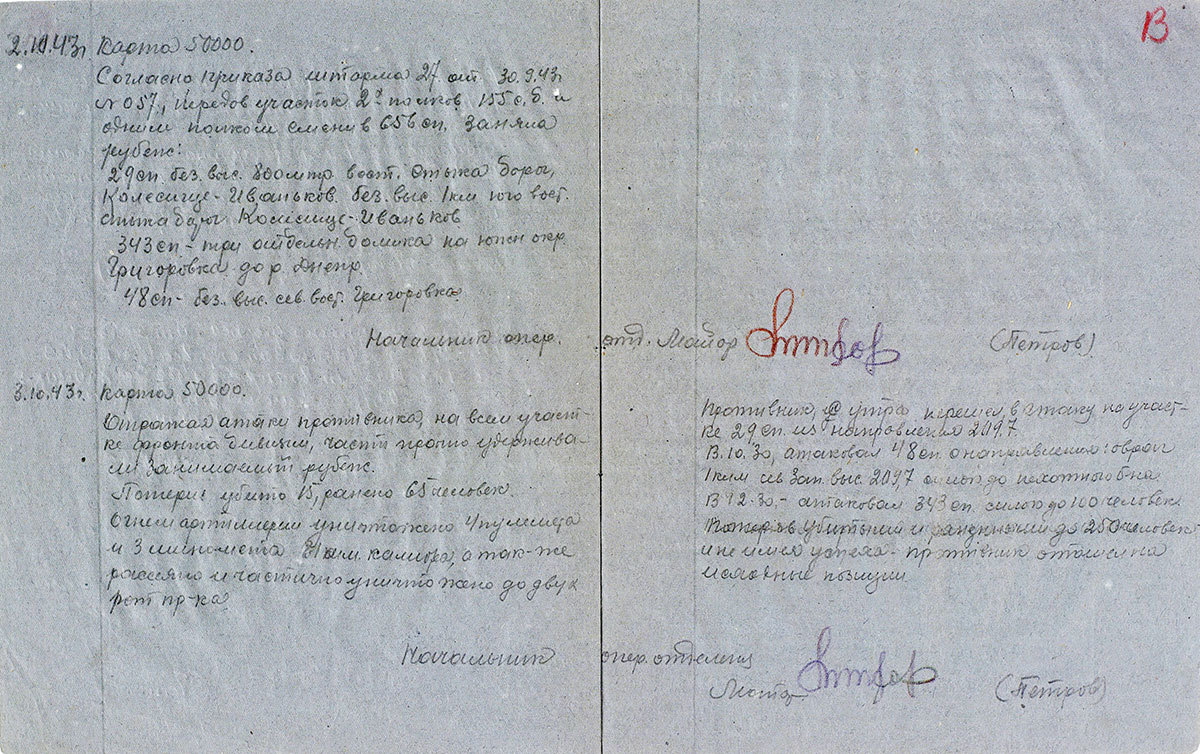 В
2.10.43г. Карта 50000.
Согласно приказа штарма 27 от 30.9.43г
№ 057, передов участок 2х полков 155с.д. и
одним полком сменив 656 сп. заняла
рубеж:
29сп. без. выс. 800 мтр. вост. стыка дорог,
Колесище-Иваньков. без. выс. 1км юго вост.
стыка дорог Колесище-Иваньков
343сп - три отдельн. домика на южн окр
Григоровка до р. Днепр.
48сп - без. выс. сев. вост. Григоровка.
Начальник опер. отд. Майор (Петров)
3.10.43г. Карта 50000.
Отражая атаки противника, на всем участ-
ке фронта дивизии, части прочно удержива-
ли занимаемый рубеж.
Потери: убито 15, ранено 65 человек.
Огнем артиллерии уничтожено 4 пулемета
и 3 миномета калибра, а так-же
рассеяно и частично уничтожено до двух
рот пр-ка
Противник, с утра перешел в атаку на участ-
ке 29 сп. из направления 209,7.
В 10.30, атаковал 48 сп. с направления: овраг
1 км сев зап. выс. 209,7 силою до пехотного б-на.
В 12.30,- атаковал 343 сп. силою до 100 человек
Потеряв убитыми и ранеными до 250 человек
и не имея успеха - противник отошел на
исходные позиции.
Начальник опер. отделения
Майор (Петров)